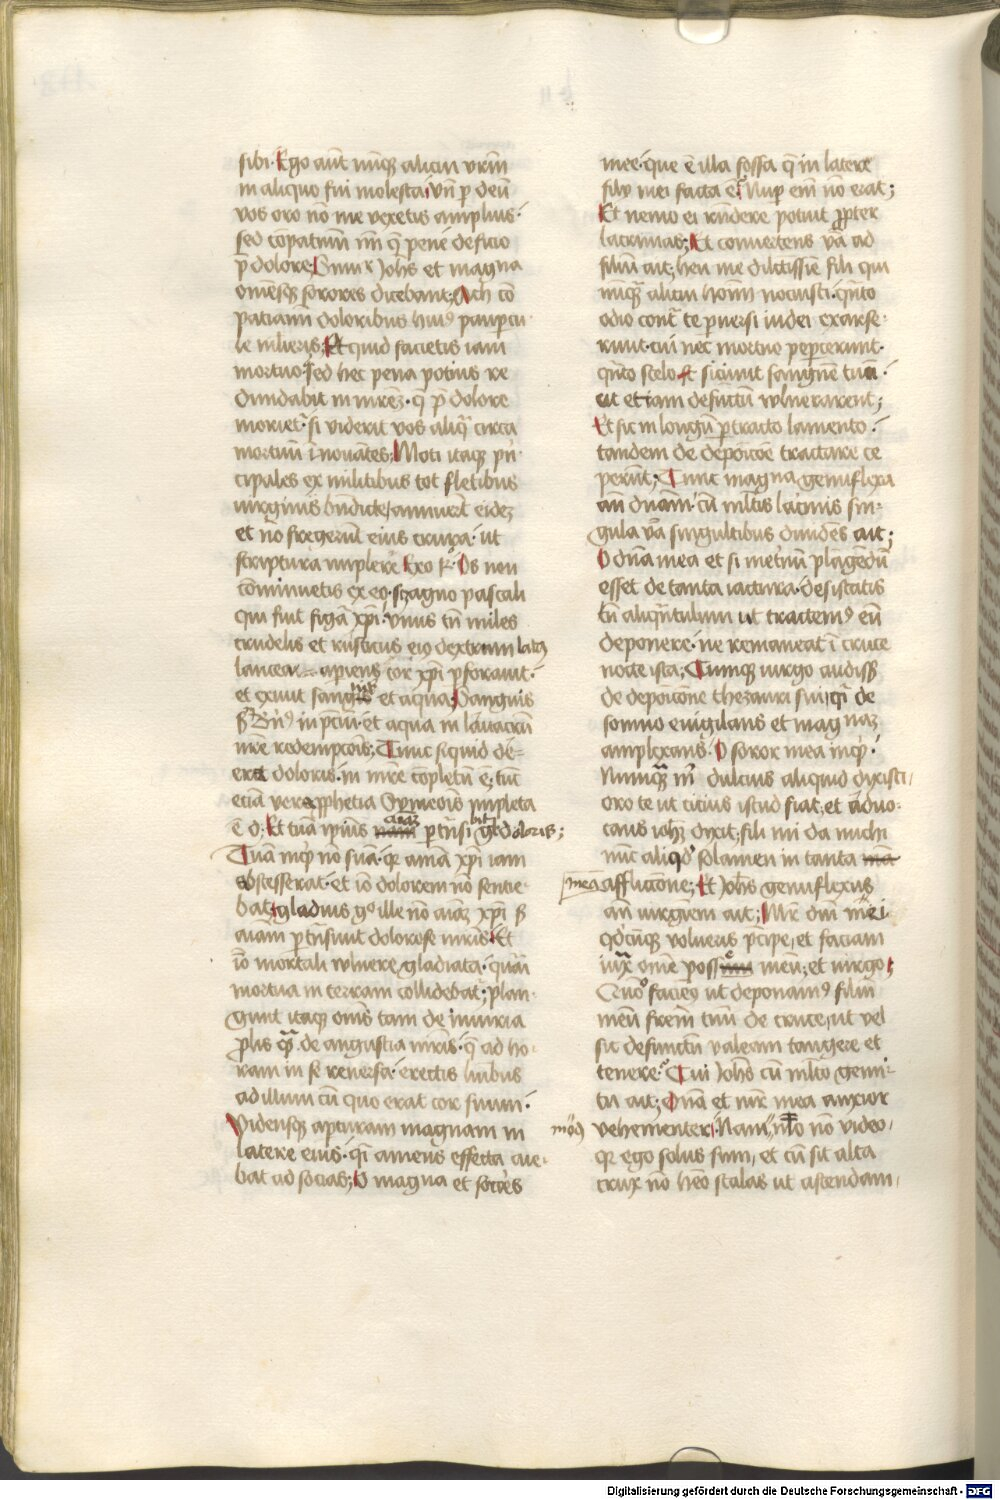 sibi. Ego aūt nūq̄ alicui vrm̄
in aliquo fui molesta. Vn̄ ꝑ deū
vos oro nō me vexetis amplius.
sed cōpatimī m̄ q̄ pene deficio
p̄ dolore; Johēs et magna
om̄esq̄ sorores dicebant; Ach cō
patiamī doloribus huiꝰ paupcu
le mlieris; Et quid facietis iam
mortuo. sed hec pena potius re
dundabit in mrēz. q̄ p̄ dolore
moriet̄. si viderit vos aliq̄ circa
mortuū īnouātes; Moti itaq̄ pn̄
cipales ex militibus tot fletibus
virginis bn̄dicte, annuerūt eidez
et nō fregerūt eius crura. ut
scriptura impleret̄. Exo Os non
cōminuetis ex eo. s. agno pascali
qui fuit figa xp̄i. Vnus tn̄ miles
crudelis et rusticus eiꝰ dextrum latꝰ
lancea aperiens cor xp̄i ꝑforauit.
et exiuit sangwis et aqua; Sanguis
in p̄ciū. et aqua in lauacrū
nr̄e redempcōis; Tunc siquid de=
erat doloris. in mr̄e cōpletū ē; tūc
eciā vere ꝓphetia Symeōis impleta
ē. Et tuā ipius aiaz ꝑtn̄sibit gl̄ doloris;
Tuā inq̄ nō suā. q̄ aīam xp̄i iam
abscesserat. et iō dolorem nō sentie
bat; gladius gͦ ille nō aīaz xp̄i sꝫ
aīam ꝑtn̄siuit dolorose mr̄is. Et
iō mortali vulnere gladiata. quasi
mortua in terram collidebat̄; plan
gunt itaq̄ om̄s tam de iniuria
ꝓlis qͣꝫ de angustia mr̄is. q̄ ad ho
ram in se reuersa. erectis luībus
ad illum cū quo erat cor suum.
Vidensq̄ apturam magnam in
latere eius. q̄i amens effecta aie
bat ad socias; O magna et socēs
mee. que ē illa fossa q̄ in latere
filij mei facta ē. Nuꝑ em̄ nō erat;
Et nemo ei rn̄dere potuit ꝓpter
lacrimas; Et conuertens v̄a ad
filiū ait; heu me dilctissīe fili qui
nūq̄ alicui hom̄i nocuisti. q̄nto
odio cont̄ te puersi iudei exarse
runt. cui nec mortuo pepcerunt.
q̄nto scelͤe sciūnt sangnē tuū.
ut etiam defunctū vulnerarent;
Et sic in longū ꝑtracto lamento.
tandem de deposicōe tractare ce
perūt; Tunc magna genuflexa
an̄ dnām. cū ml̄tis lacīmis sin
gula v̄a singultibus diuidēs ait;
O dn̄a mea et si meritū plāgedū
esset de tanta iactura. desistatis
tn̄ aliqn̄tulum ut tractemꝰ eū
deponere. ne remaneat ī cruce
nocte ista; Cumq̄ virgo audiss
de deposicōne thezauri sui, q̄i de
somno euigilans et magnaz
amplexans. O soror mea inq̄.
Numq̄ m̄ dulcius aliquid dixisti,
oro te ut citius istud fiat; et aduo
cans ioh̄em dixit; fili mi da michi
nūc aliqd̄ solamen in tanta
mea afflictione; Et Joh̄es genuflexus
an̄ virgīem ait; Mr̄ dn̄i mei.
qd̄cūq̄ volueris p̄cipe, et faciam
iuxͣ om̄e posse meū; et virgo;
Quō faciemꝰ ut deponamꝰ filiū
meū frem̄ tuū de cruce, ut vel
sic defunctū valeam tangere et
tenere. Cui Joh̄es cū ml̄to gemi
tu ait; Dn̄a et mr̄ mea anxior
modͦ vehementer. Nam m̄lo nō video,
q̄ ego solus sum, et cū sit alta
crux nō h̄eo scalas ut ascendam,
Digitalisierung gefördert durch die Deutsche Forschungsgemeinschaft - DFG